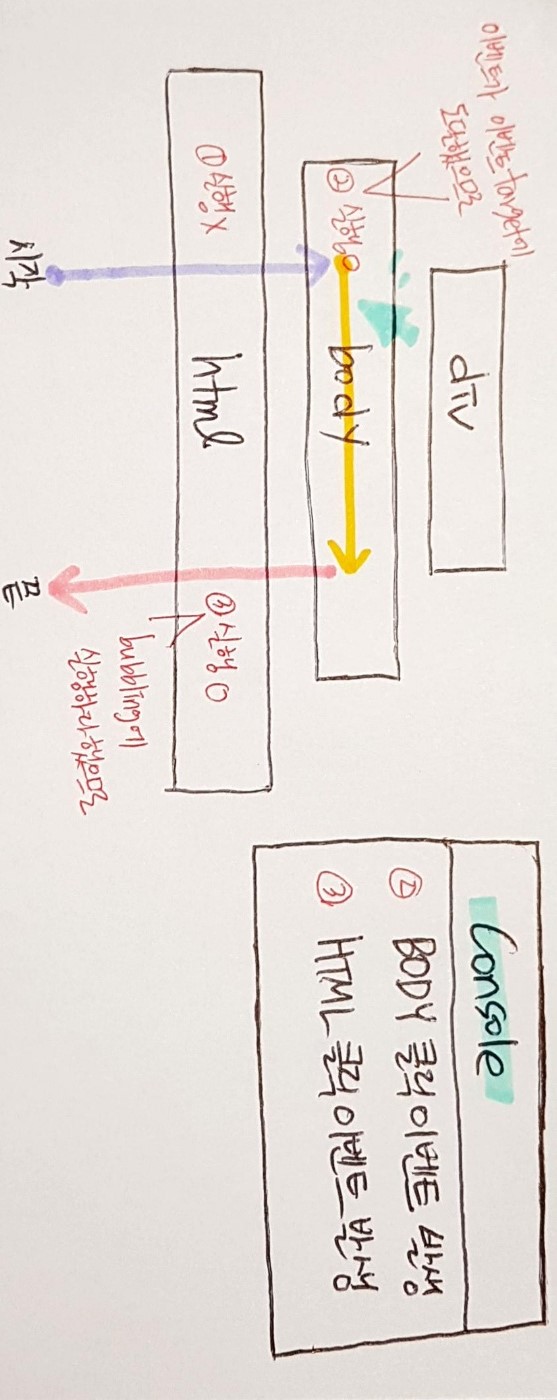 이벤트가 이벤트 target에
도달했으므로
div
② 실행O
body
① 실행X
html
③ 실행 O
bubbling에
실행하라 했으므로
시작
끝
Console
② BODY 클릭 이벤트 발생
③ HTML 클릭 이벤트 발생